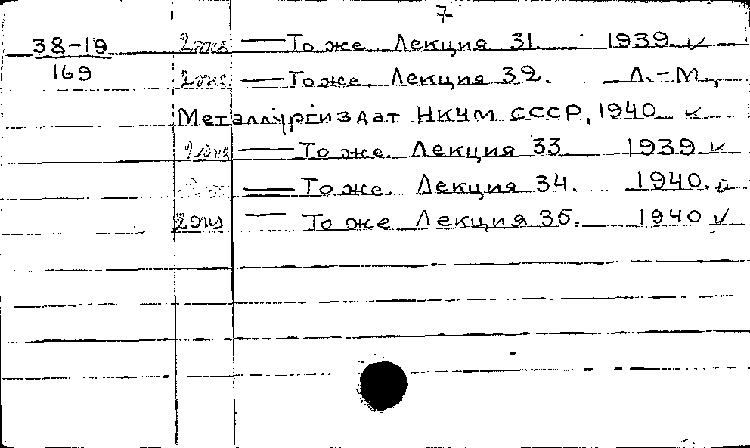 7
38-19 2 экз — То же. Лекция 31. 1939 ✓
169 2 экз — То же. Лекция 32. Л.-М.,
Металлургиздат НКЧМ СССР, 1940 ✓
2 экз — То же. Лекция 33 1939 ✓
— То же. Лекция 34. 1940. ✓
2 экз — То же Лекция 35. 1940 ✓